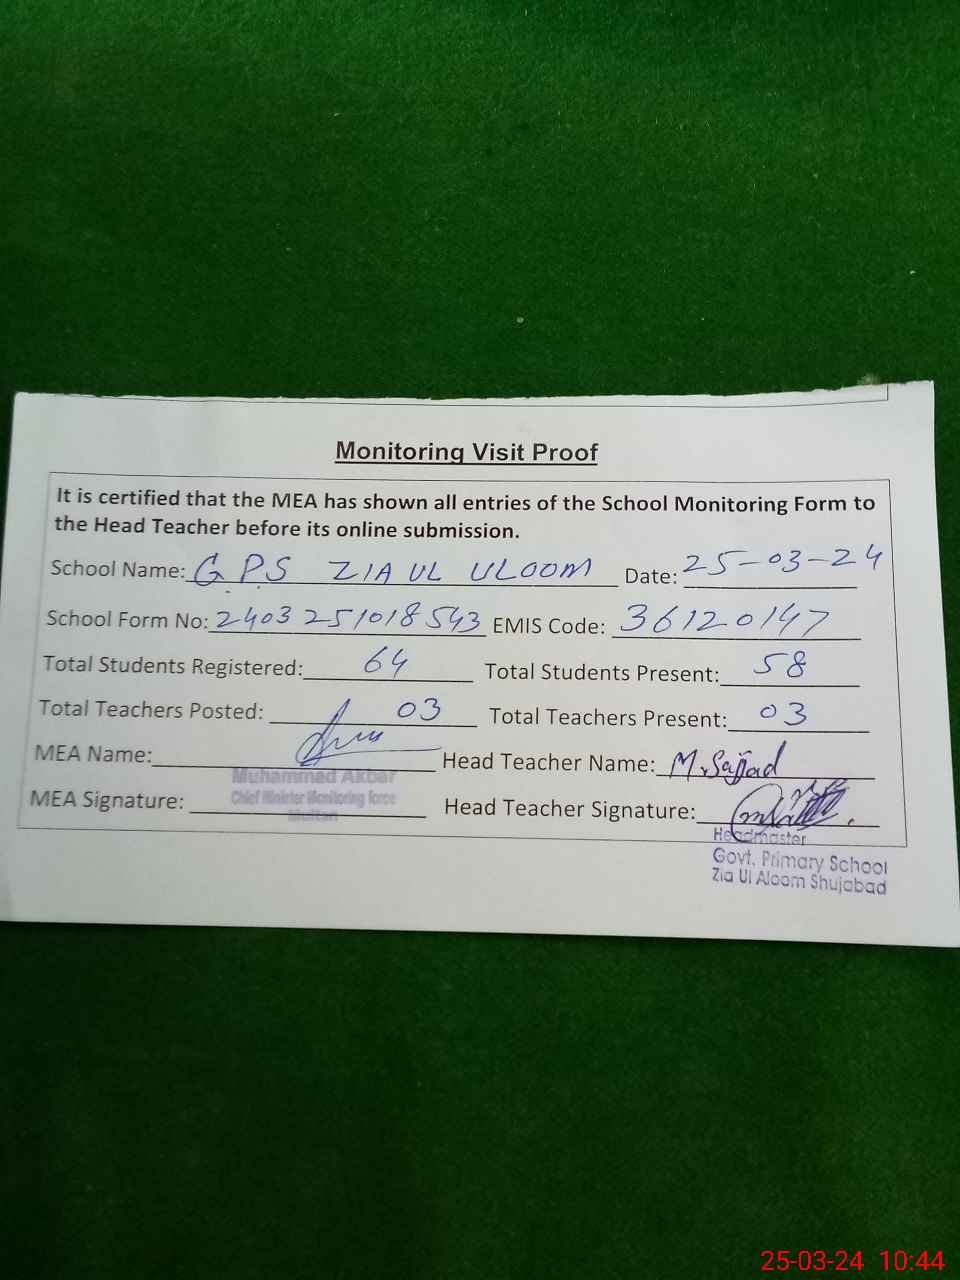 Monitoring Visit Proof
It is certified that the MEA has shown all entries of the School Monitoring Form to
the Head Teacher before its online submission.
School Name: G P S ZIA UL ULOOM Date: 25-03-24
School Form No: 2403251018543 EMIS Code: 36120147
Total Students Registered: 64 Total Students Present: 58
Total Teachers Posted: 03 Total Teachers Present: 03
MEA Name: Head Teacher Name: M.Sajjad
Muhammad Akbar
Chief Minister Monitoring force
Multan
MEA Signature: Head Teacher Signature:
Headmaster
Govt. Primary School
Zia Ul Aloom Shujabad
25-03-24 10:44